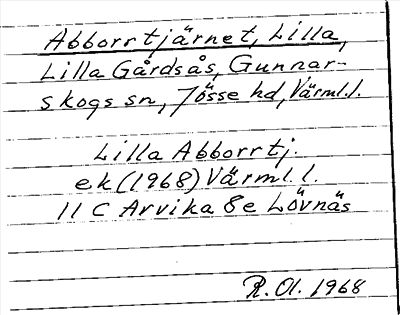 Abborrtjärnet, Lilla,
Lilla Gårdsås, Gunnar-
skogs sn, Jösse hd, Värml.l.
Lilla Abborrtj.
ek (1968) Värml.l.
11 C Arvika 8e Lövnäs
R. Ol. 1968